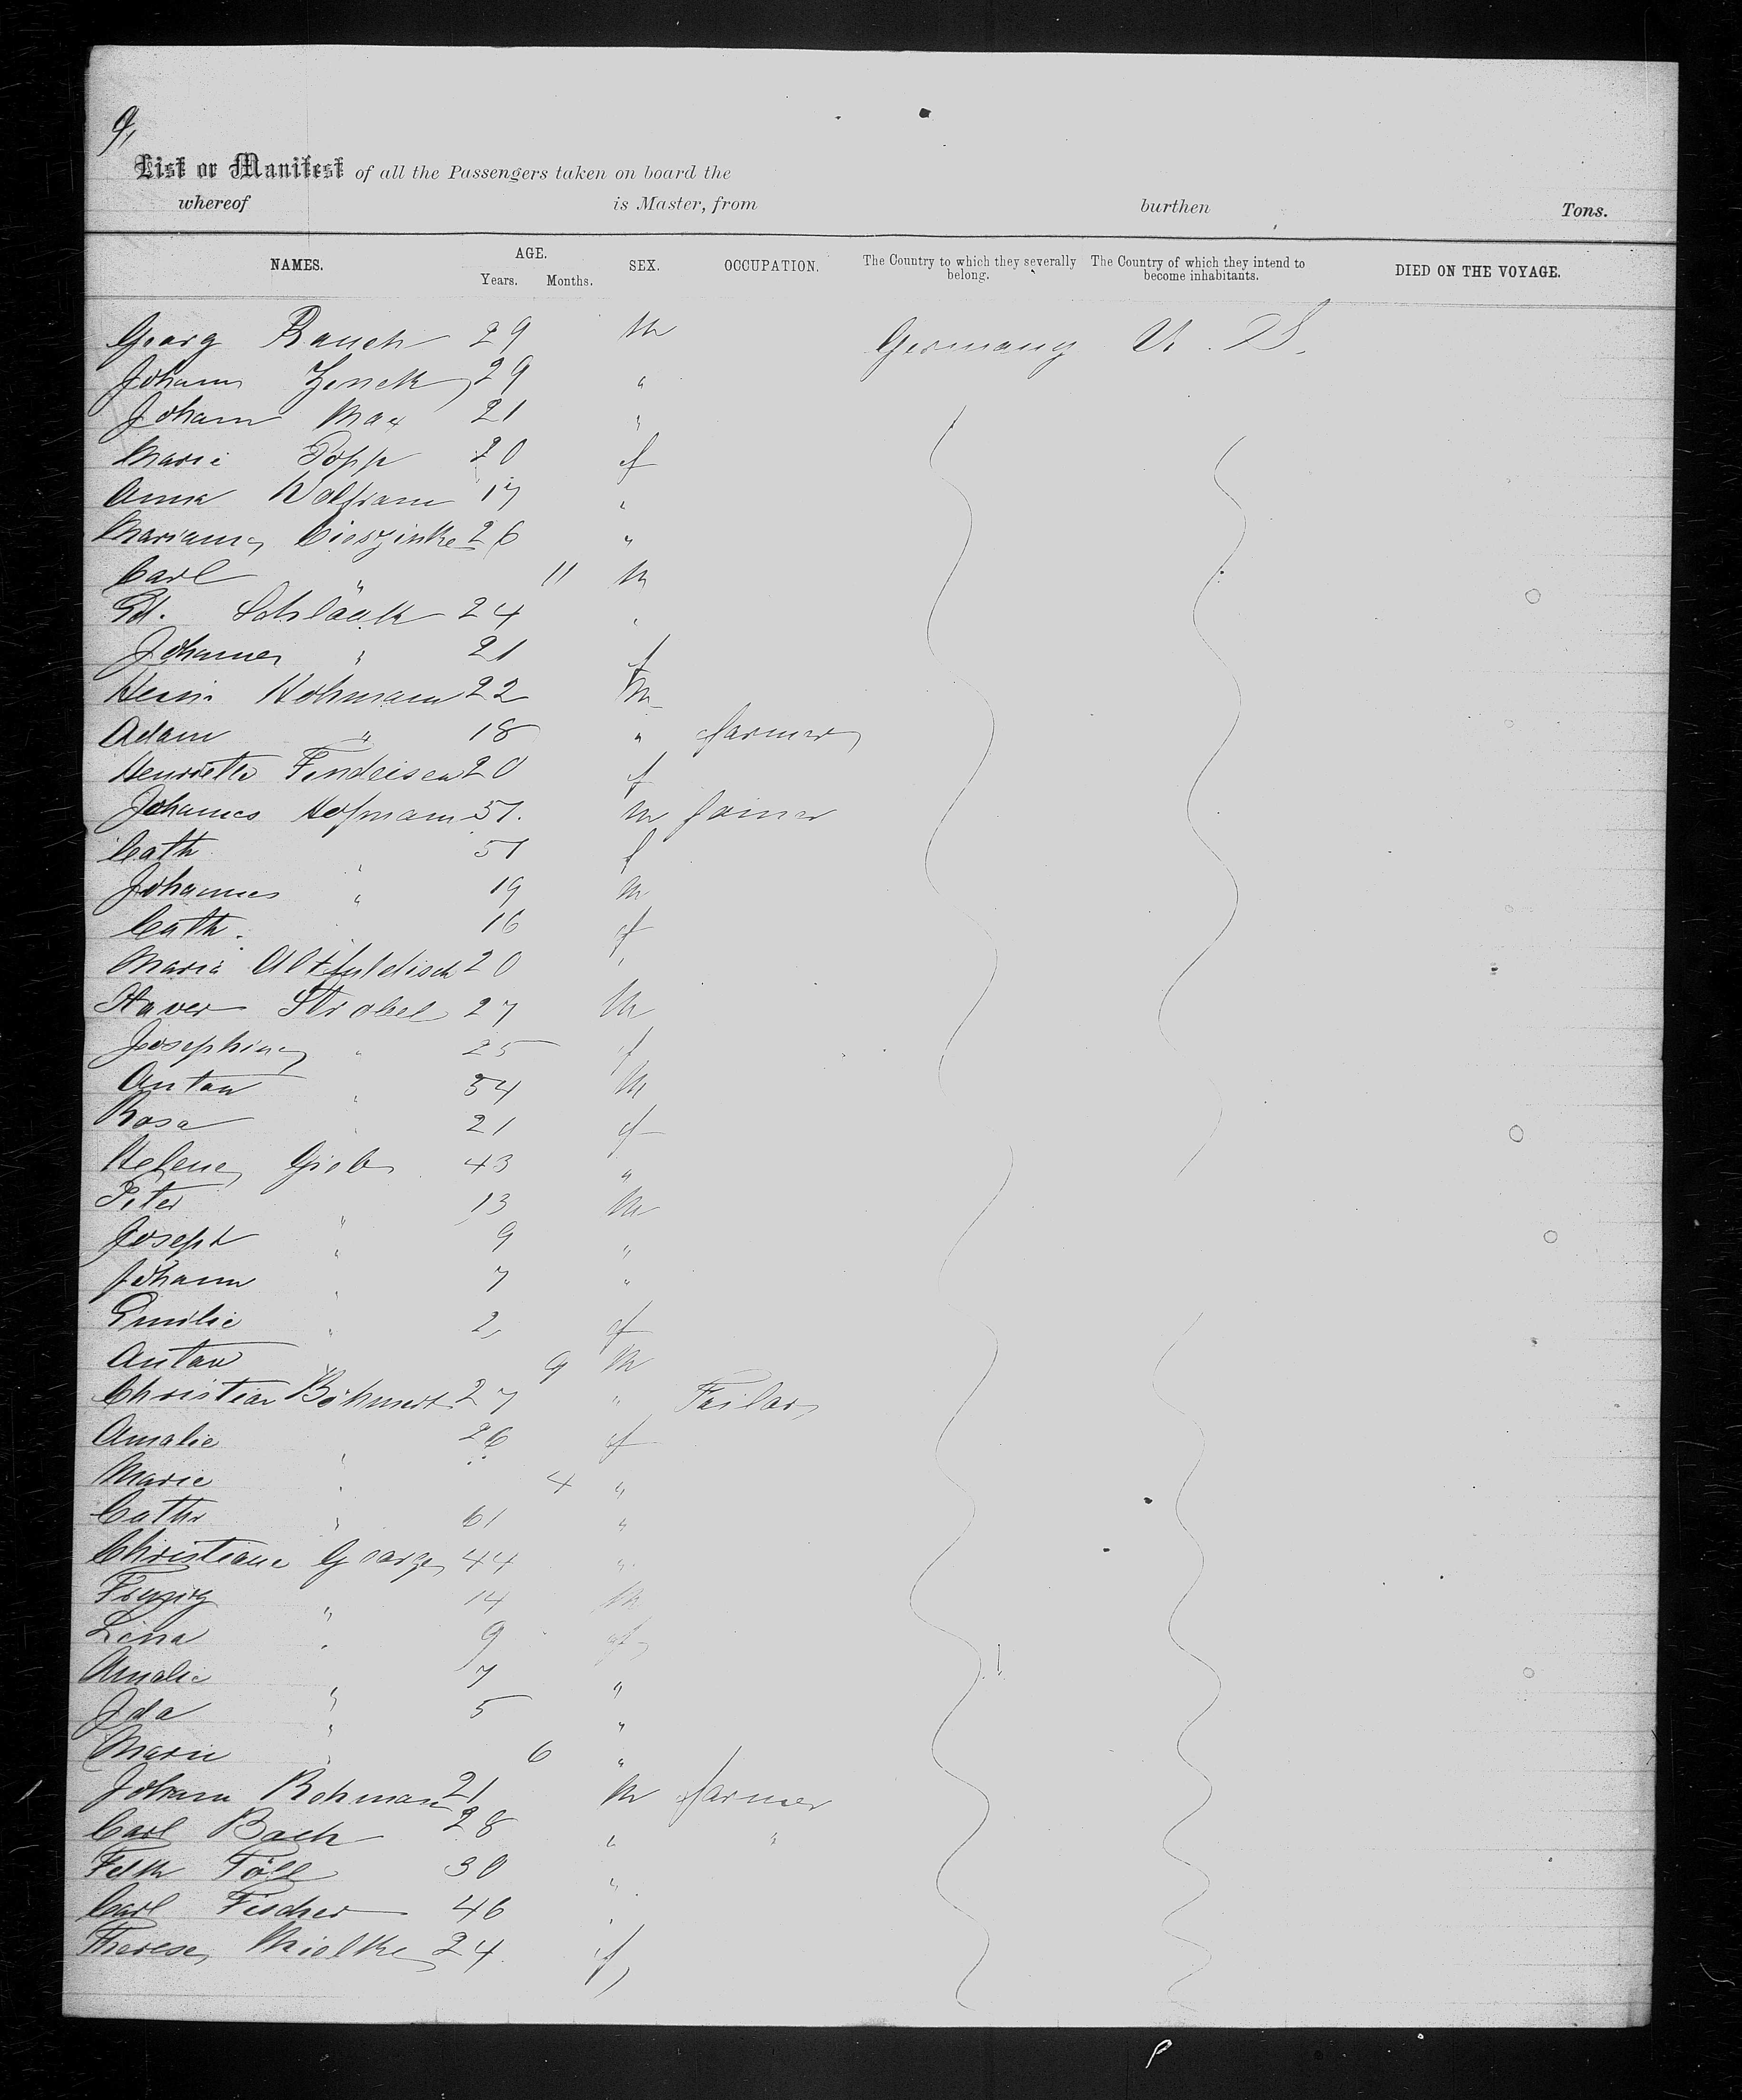 9,
List or Manifest of all the Passengers taken on board the
whereof is Master, from burthen Tons.
NAMES. AGE. Years. Months. SEX. OCCUPATION. The Country to which they severally belong. The Country of which they intend to become inhabitants. DIED ON THE VOYAGE.
Georg Rauch 29 m Germany U. S.
Johann Zenck 29 "
Johann Max 21 "
Marie Popp 20 f
Anna Wolfram 17 "
Marianna Cieszinske 26 "
Carl " 11 m
Ed. 24 "
Johanne " 21 f
Heinr. Hohmann 22 m
Adam " 18 " farmer
Henriette Findeisen 20 f
Johannes Hofmann 51. m
Cath " 51 f
Johannes " 19 m
Cath. " 16 f
Maria Altfuldisch 20 "
Xaver Strobel 27 m
Josephine " 25 f
Anton " 54 m
Rosa " 21 f
Helene 43 "
Peter " 13 m
Joseph " 9 "
Johann " 7 "
Emilie " 2 f
Anton " 9 m
Christian Böhmert 27 " Tailor
Amalie " 26 f
Marie " 4 "
Cath " 61 "
Christiane George 44 "
14 m
Lina " 9 f
Amalie " 7 "
Ida " 5 "
Marie " 6 "
Johann Rohmann 21 m farmer
Carl Bach 28 " "
Töll 30 "
Carl Fischer 46 "
Therese Mielke 24 f